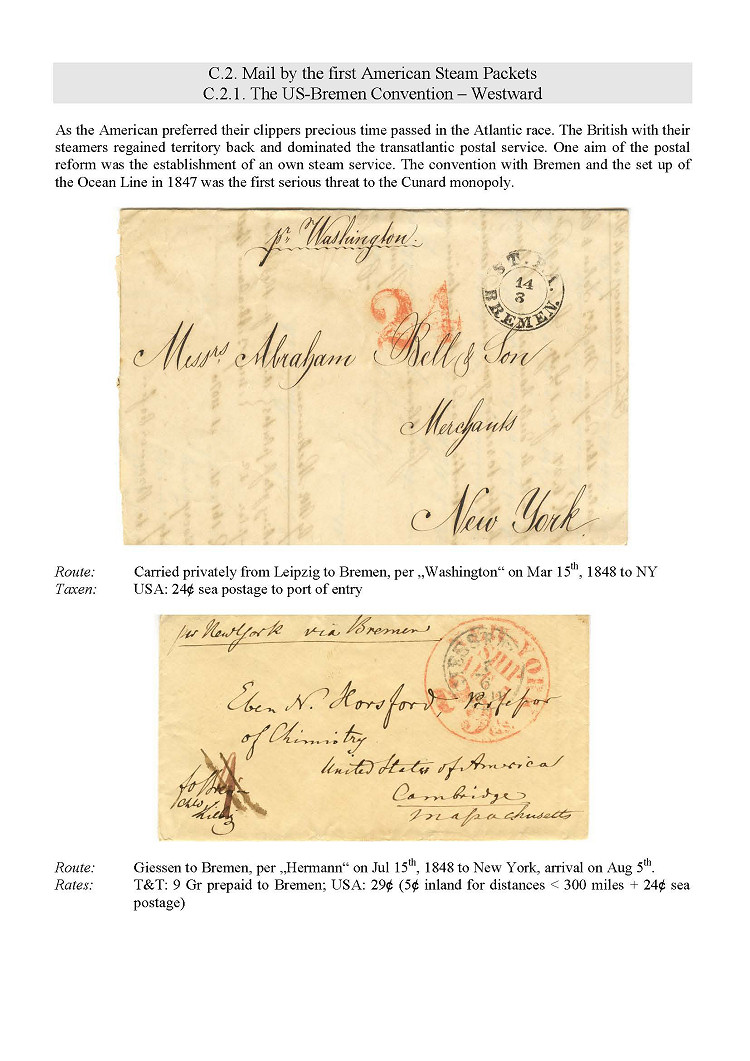 C.2. Mail by the first American Steam Packets
C.2.1. The US-Bremen Convention – Westward
As the American preferred their clippers precious time passed in the Atlantic race. The British with their
steamers regained territory back and dominated the transatlantic postal service. One aim of the postal
reform was the establishment of an own steam service. The convention with Bremen and the set up of
the Ocean Line in 1847 was the first serious threat to the Cunard monopoly.
pr Washington.
ST.P.A.
14
3
BREMEN.
24
Messrs Abraham Bell & Son
Merchants
New York
Route: Carried privately from Leipzig to Bremen, per „Washington“ on Mar 15th, 1848 to NY
Taxen: USA: 24¢ sea postage to port of entry
pr New York via Bremen
YORK
SHIP
Eben N. Horsford, Professor
of Chimistry
United States of America
Cambridge
Massachusetts
Route: Giessen to Bremen, per „Hermann“ on Jul 15th, 1848 to New York, arrival on Aug 5th.
Rates: T&T: 9 Gr prepaid to Bremen; USA: 29¢ (5¢ inland for distances < 300 miles + 24¢ sea
postage)